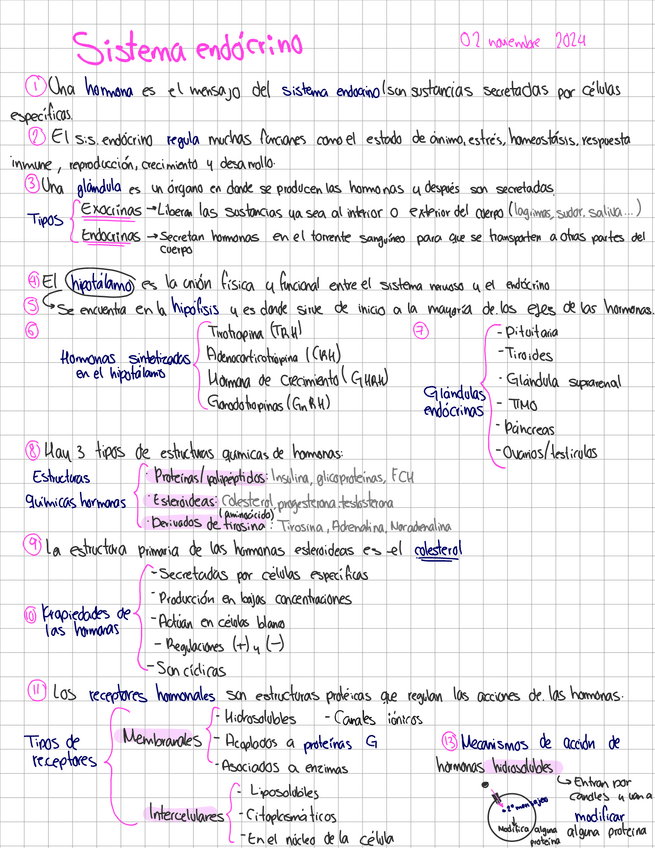 Sistema endócrino
02 noviembre 2024
① Una hormona es el mensajo del sistema endocrino/son sustancias secretadas por células
específicas.
② El sis. endócrino regula muchas funciones como el estado de ánimo, estrés, homeostásis, respuesta
inmune, reproducción, crecimiento y desarrollo.
③ Una glándula es un órgano en donde se producen las hormonas y después son secretadas.
Tipos
Exocrinas → Liberan las sustancias ya sea al interior o exterior del cuerpo (lagrimas, sudor, saliva...)
Endocrinas → Secretan hormonas en el torrente sanguíneo para que se transporten a otras partes del
cuerpo
④ El hipotálamo es la unión física y funcional entre el sistema nervioso y el endócrino
⑤ ↳ Se encuentra en la hipófisis y es donde sirve de inicio a la mayoría de los ejes de las hormonas.
⑥
Hormonas sintetizadas
en el hipotálamo
Tirotropina (TRH)
Adenocorticotropina (CRH)
Hormona de crecimiento (GHRH)
Gonadotropinas (GnRH)
⑦
Glándulas
endócrinas
- Pituitaria
- Tiroides
· Glándula suprarrenal
- TIMO
- Páncreas
- Ovarios/testículos
⑧ Hay 3 tipos de estructuras químicas de hormonas:
Estructuras
químicas hormonas
· Proteínas/polipéptidos: Insulina, glicoproteínas, FCH
· Esteroideas: Colesterol, progesterona, testosterona
(aminoácido)
· Derivados de tirosina: Tirosina, Adrenalina, Noradrenalina
⑨ La estructura primaria de las hormonas esteroideas es el colesterol
⑩ Propiedades de
las hormonas
- Secretadas por células específicas
- Producción en bajas concentraciones
- Actúan en células blanco
- Regulaciones (+) y (-)
- Son cíclicas
⑪ Los receptores hormonales son estructuras protéicas que regulan las acciones de las hormonas.
Tipos de
receptores
Membranales
- Hidrosolubles - Canales iónicos
- Acoplados a proteínas G
- Asociados a enzimas
Intercelulares
- Liposolubles
- Citoplasmáticos
- En el núcleo de la célula
⑬ Mecanismos de acción de
hormonas hidrosolubles
↳ Entran por
canales y van a
modificar
alguna proteína
2º mensajero
Modifica alguna
proteína